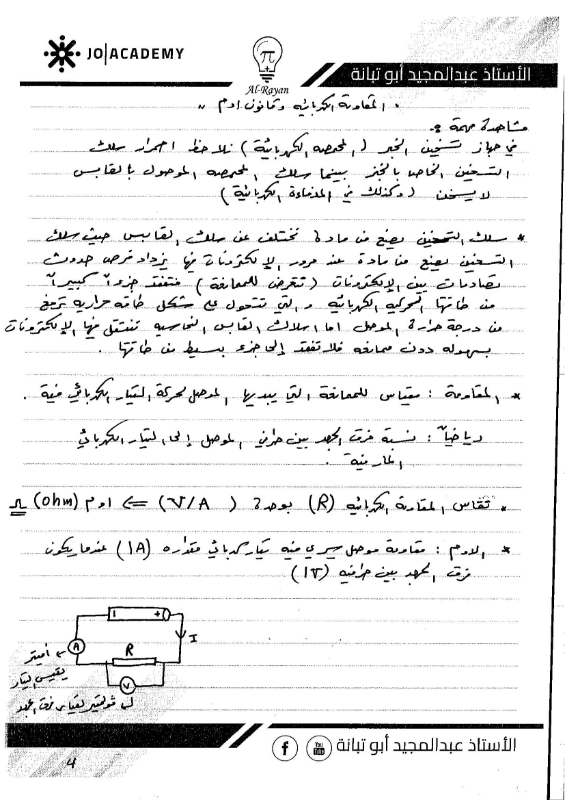 JO|ACADEMY
π
Al-Rayan
الأستاذ عبدالمجيد أبو تبانة
. المقاومة الكهربائية وقانون اوم ..
مشاهدة مهمة :
في جهاز تسخين الخبز ( المحمصة الكهربائية ) نلاحظ احمرار سلك
التسخين الخاص بالخبز بينما سلك المحمصة الموصول بالقابس
لا يسخن ( وكذلك في المدفأة الكهربائية )
* سلك التسخين يصنع من مادة تختلف عن سلك القابس حيث سلك
التسخين يصنع من مادة عند مرور الإلكترونات فيها يزداد فرص حدوث
تصادمات بين الإلكترونات ( تتعرض للممانعة ) فتفقد جزءاً كبيراً
من طاقتها الحركية الكهربائية والتي تتحول على شكل طاقة حرارية ترفع
من درجة حرارة الموصل اما اسلاك القابس النحاسية فتنتقل فيها الإلكترونات
بسهولة دون ممانعة فلا تفقد إلا جزء بسيط من طاقتها .
* المقاومة : مقياس للممانعة التي يبديها الموصل لحركة التيار الكهربائي فيه .
رياضياً : نسبة فرق الجهد بين طرفي الموصل إلى التيار الكهربائي
المار فيه .
* تقاس المقاومة الكهربائية (R) بوحدة ( V/A ) ⇐ اوم (ohm) Ω
* الاوم : مقاومة موصل يسري فيه تيار كهربائي مقداره (1A) عندما يكون
فرق الجهد بين طرفيه (1V)
- +
I
A
R
V
اميتر
يقيس التيار
فولتميتر لقياس فرق الجهد
الأستاذ عبدالمجيد أبو تبانة
You Tube
f
4